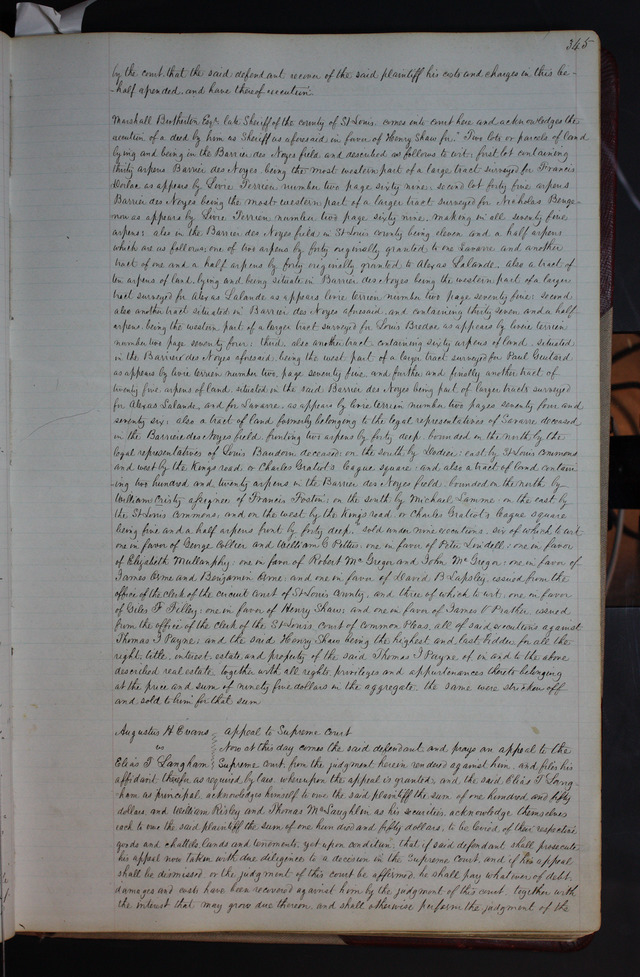 345
by the court that the said defendant recover of the said plaintiff his costs and charges in this be-
half expended, and have thereof execution
Marshall Brotherton Esqr late Sheriff of the county of St Louis comes into court here and acknowledges the
execution of a deed by him as Sheriff as aforesaid, in favor of Henry Shaw for "Two lots or parcels of land
lying and being in the Barrier des Noyes field and described as follows to wit: first lot containing
thirty arpens Barrier des Noyes, being the most western part of a large tract surveyed for Francis
as appears by Livre Terrien number two page sixty nine: second lot forty five arpens.
Barrier des Noyes being the most western part of a larger tract surveyed for Nicholas Beuge-
now as appears by Livre Terrien number two page sixty nine, making in all seventy five
arpens: also in the Barrier des Noyes field in St Louis county being eleven and a half arpens
which are as follows: one of two arpens by forty originally granted to one Lavarre and another
tract of one and a half arpens by forty originally granted to Alexas Lalande. Also a tract of
ten arpens of land lying and being situate in Barrier des Noyes being the western part of a larger
tract surveyed for Alexas Lalande as appears livre terrien number two page seventy five: second
also another tract situated in Barrier des Noyes aforesaid, and containing thirty seven and a half
arpens, being the western part of a larger tract surveyed for Louis Bredae as appears by livre terrien
number two page seventy four; third, also another tract containing sixty arpens of land situated
in the Barriere des Noyes aforesaid, being the west part of a larger tract surveyed for Paul Guitard
as appears by livre terrien number two, page seventy five and further and finally another tract of
twenty five arpens of land, situated in the said Barrier des Noyes being part of larger tracts surveyed
for Alexas Lalande, and for Lavarre, as appears by livre terrien number two pages seventy four and
seventy six; also a tract of land formerly belonging to the legal representatives of Lavare deceased
in the Barriere des Noyes field, fronting two arpens by forty deep, bounded on the north by the
legal representatives of Louis Baudoin deceased; on the south by Hodiee; east by St Louis commons
and west by the Kings road or Charles Gratiot's league square; and also a tract of land contain
ing two hundred and twenty arpens in the Barrier des Noyes field, bounded on the north by
William Cristy assignee of Francis Fostin; on the south by Michael Lamme; on the east by
the St Louis Commons, and on the west by the King's road or Charles Gratiot's league square
being five and a half arpens front by forty deep," sold under nine executions, six of which to wit
one in favor of George Collier and William G Pettus, one in favor of Peter Lindell; one in favor
of Elizabeth Mullanphy; one in favor of Robert McGregor and John McGregor; one in favor of
James Orme and Benjamin Orme; and one in favor of David B Lapsley, issued from the
office of the clerk of the circuit Court of St Louis County, and three of which to wit, one in favor
of Giles F Filley; one in favor of Henry Shaw; and one in favor of James V Prather, issued
from the office of the clerk of the St Louis Court of Common Pleas, all of said executions against
Thomas J Payne; and the said Henry Shaw being the highest and last bidder for all the
right, title, interest estate, and property of the said Thomas J Payne of, in and to the above
described real estate, together with all rights, privileges and appurtenances thereto belonging
at the price and sum of ninety five dollars in the aggregate, the same were stricken off
and sold to him for that sum.
Augustus H Evans appeal to Supreme Court
vs Now at this day comes the said defendant and prays an appeal to the
Elias T Langham Supreme Court, from the judgment herein rendered against him, and files his
affidavit therefor as required by law, whereupon the appeal is granted; and the said Elias T Lang-
ham as principal, acknowledges himself to owe the said plaintiff the sum of one hundred and fifty
dollars, and William Risley and Thomas McLaughlin as his securities, acknowledge themselves
each to owe the said plaintiff the sum of one hundred and fifty dollars, to be levied of their respective
goods and chattels, lands and tenements, yet upon condition, that if said defendant shall prosecute
his appeal now taken with due diligence to a decision in the Supreme Court, and if his appeal
shall be dismissed, or the judgment of this court be affirmed, he shall pay whatever of debt,
damages and costs have been recovered against him by the judgment of this court, together with
the interest that may grow due thereon, and shall otherwise perform the judgment of the